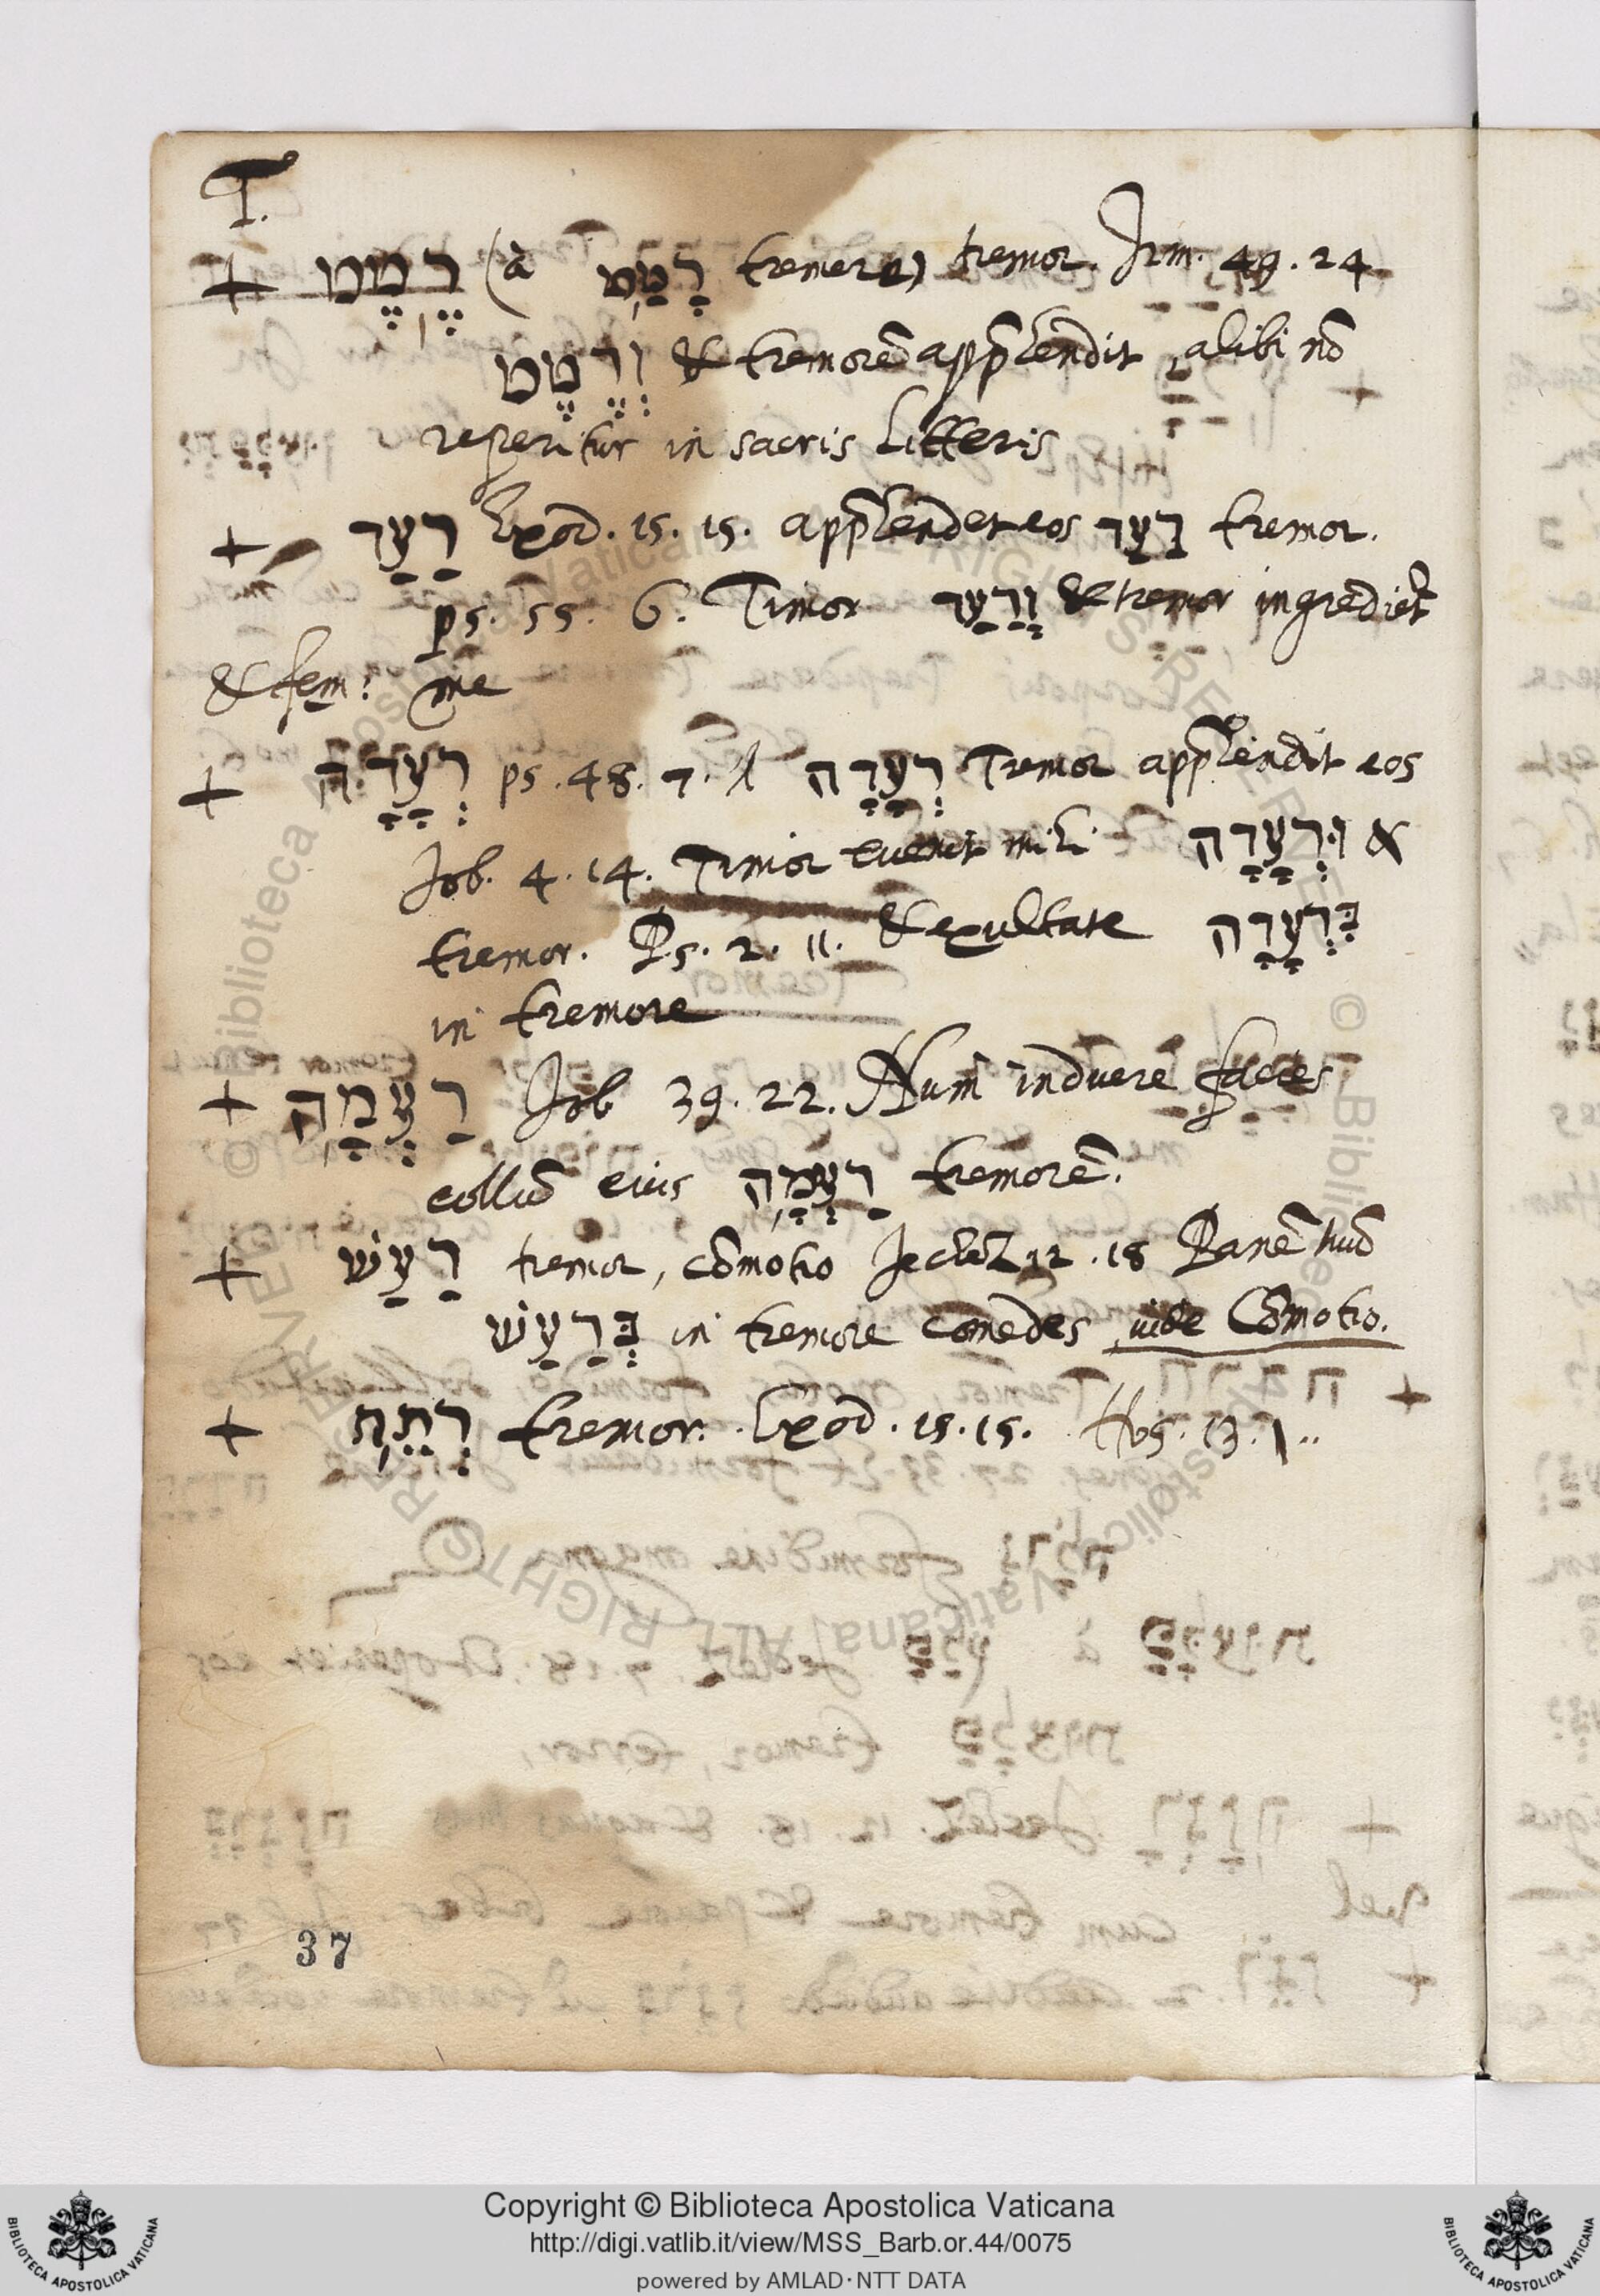 T.
+ רֶטֶט (à רָטַט tremere) tremor. Irm. 49. 24
וְרֶטֶט & tremorē apprẽhendit, alibi nō
reperitur in sacris litteris
+ רַעַד Exod. 15. 15. apprẽhendet eos רַעַד tremor.
ps. 55. 6. Timor וָרַעַד & tremor ingrediet
& fem: me
+ רְעָדָה ps. 48. 7. רְעָדָה Tremor apprẽhendit eos
Job. 4. 14. Timor euenit mihi וּרְעָדָה &
tremor. Ps. 2. 11. & exultate בִּרְעָדָה
in tremore
+ רַעְמָה Job 39. 22. Num induere facies
collū eius רַעְמָה tremorē.
+ רַעַשׁ tremor, cōmotio Jechez 12. 18 Panē tuū
בְּרַעַשׁ in tremore comedes, uide Cōmotio.
+ רְתֵת tremor. Exod. 15. 15. Hos. 13. 1
37
Copyright © Biblioteca Apostolica Vaticana
http://digi.vatlib.it/view/MSS_Barb.or.44/0075
powered by AMLAD·NTT DATA
BIBLIOTECA APOSTOLICA VATICANA
BIBLIOTECA APOSTOLICA VATICANA